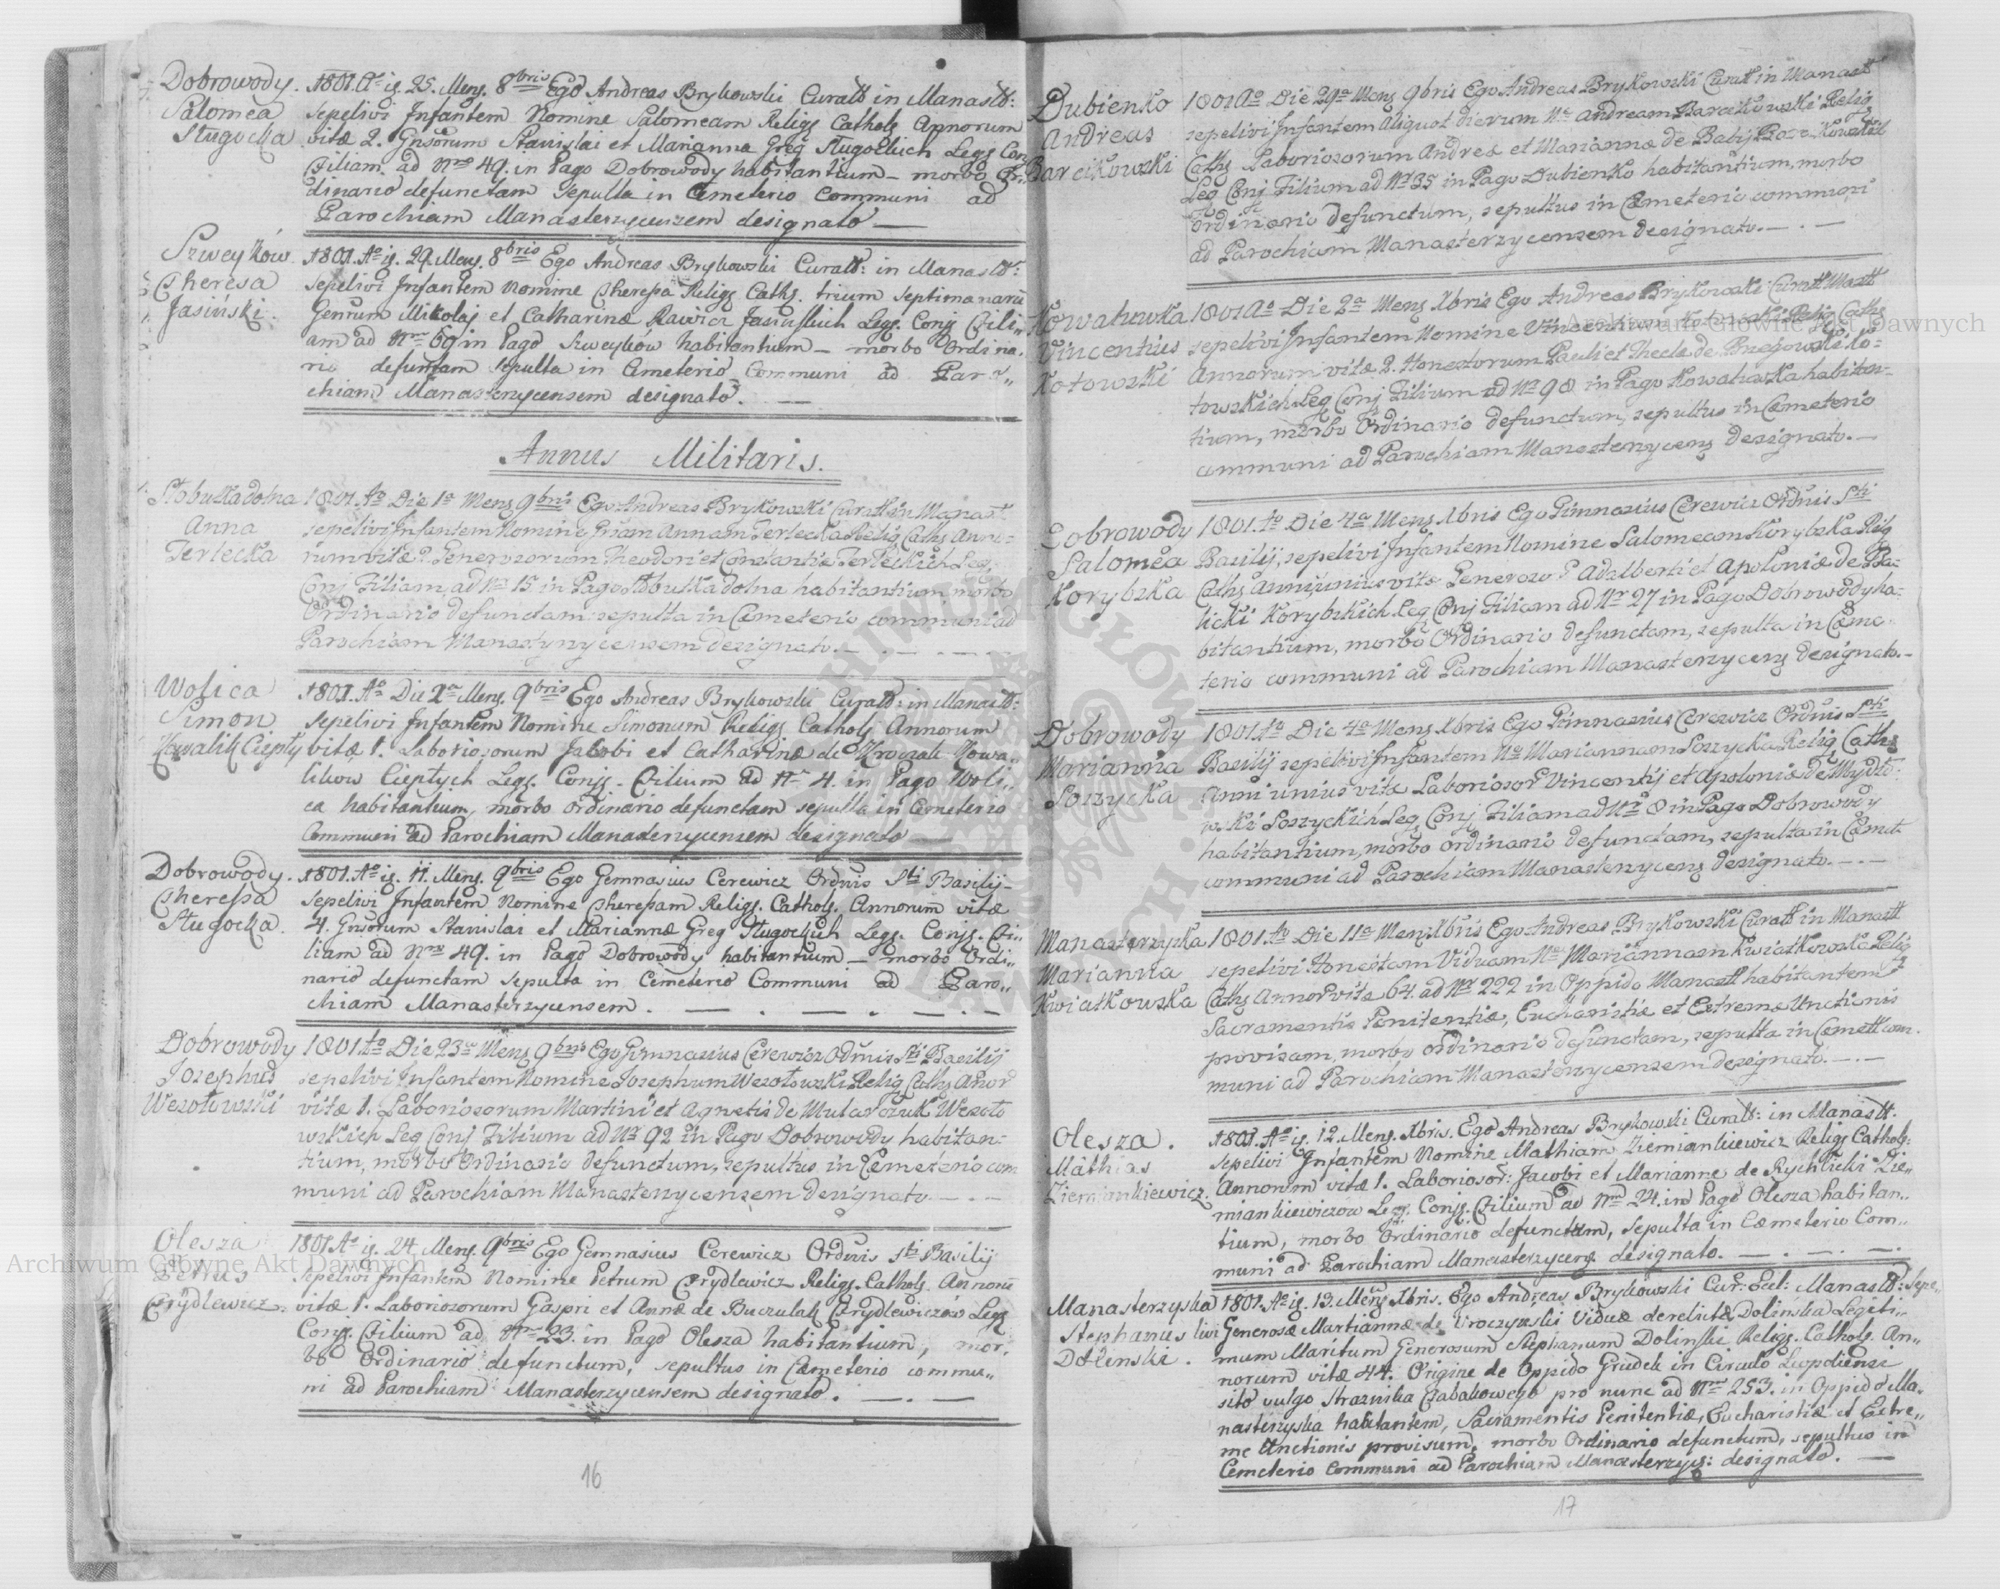 Dobrowody.
Salomea
Sługocka
1801. Ao is. 25. Mens. 8bris Ego Andreas Brykowski Curatt in Manastt:
sepelivi Infantem Nomine Salomeam Religs Cathols Annorum
vitæ 2. Gnsorum Stanislai et Marianna Greg Sługockich Legs Con
Filiam. ad Nro 49. in Pago Dobrowody habitantium – morbo Or-
dinario defunctam Sepulta in Cemeterio Communi ad
Parochiam Manasterzycensem designato —
Szweyków
Theresa
Jasiński.
1801. Ao is. 29. Mens. 8bris Ego Andreas Brykowski Curatt: in Manastt:
sepelivi Infantem Nomine Theresa Religs Caths. trium Septimanarū
Genrum Mikołaj et Catharinæ Rawicz Jasińskich Legs. Conjs Fili„
am ad Nro 69 in Pago Szweykow habitantium – morbo Ordina„
rio defunctam Sepulta in Cemeterio Communi ad Paro„
chiam Manasterzycensem designato. —
Annus Militaris.
Słobutkadolna
Anna
Terlecka
1801. Ao Die 1a Mens 9bris Ego Andreas Brykowski Curatt in Manast
sepelivi Infantem Nomine Annam Terlecka Relig Caths Anno-
rum vitæ 2 Generosorum Theodori et Constantiæ Terleckich Leg.
Conj Filiam, ad Nr 15 in Pago Słobutkadolna habitantium, morbo
Ordinario defunctam, sepulta in Cœmeterio communi ad
Parochiam Manasterzycensem designato. —
Wolica
Simon
Kowalik Ciepły
1801. Ao Die 2a Mens. 9bris Ego Andreas Brykowski Curatt: in Manastt:
Sepelivi Infantem Nomine Simonum Religs Cathols Annorum
vitæ 1. Laboriosorum Jakobi et Catharinæ de Kowa„
likow Ciepłych Legs. Conjs. Filium ad Nr 4. in Pago Woli„
ca habitantium, morbo ordinario defunctam sepulta in Cemeterio
Communi ad Parochiam Manasterzycensem designato —
Dobrowody.
Theresa
Sługocka.
1801. Ao is. 11. Mens. 9bris Ego Gemnasius Cerewicz Ordnis Sti Basilij
Sepelivi Infantem Nomine Theresam Religs. Cathols. Annorum vitæ
4. Gnsorum Stanislai et Mariannæ Greg Sługockich Legs. Conjs. Fi„
liam ad Nro 49. in Pago Dobrowody habitantium – morbo Ordi„
nario defunctam sepulta in Cemeterio Communi ad Paro„
chiam Manasterzycensem. — . — . —
Dobrowody
Josephus
Wesołowski
1801. to Die 23a Mens 9bris Ego Gimnasius Cerewicz Ordnis Sti Basilij
sepelivi Infantem Nomine Josephum Wesołowski Relig Caths Anor
vitæ 1. Laboriosorum Martini et Agnetis de Mularczuk Wesoło
wskich Leg Conj Filium ad Nr 92 in Pago Dobrowody habitan-
tium, morbo Ordinario defunctum, sepultus in Cemeterio com
muni ad Parochiam Manasterzycensem designato. — . —
Olesza
Petrus
Frydlewicz.
1801. Ao is. 24. Mens. 9bris Ego Gemnasius Cerewicz Ordnis Sti Basilij
Sepelivi Infantem Nomine Petrum Frydlewicz Religs. Cathols. Annorū
vitæ 1. Laboriosorum Gaspri et Annæ de Buczulak Frydlewiczów Legs
Conjs. Filium ad Nro 23. in Pago Olesza habitantium, mor„
bo Ordinario defunctum, sepultus in Cœmeterio commu„
ni ad Parochiam Manasterzycensem designato. — . —
16
Dubienko
Andreas
Barcikowski
1801 Ao Die 29a Mens 9bris Ego Andreas Brykowski Curatt in Manastt
sepelivi Infantem Aliquot dierum Ne Andream Barcikowski Relig
Caths Laboriosorum Andreæ et Mariannæ de Baby Barcikowskich
Leg Conj Filium ad Nr 35 in Pago Dubienko habitantium, morbo
Ordinario defunctum, sepultus in Cœmeterio communi
ad Parochiam Manasterzycensem designato. — . —
Kowahowka
Vincentius
Kotowski
1801 Ao Die 2a Mens Xbris Ego Andreas Brykowski Curatt Mastt
sepelivi Infantem Nomine Vincentium Kotowski Relig Caths
Annorum vitæ 2. Honestorum Pauli et Theclæ de Bnegowski Ko-
towskich Leg Conj Filium ad Nr 98 in Pago Kowahowka habitan-
tium, morbo Ordinario defunctum, sepultus in Cœmeterio
communi ad Parochiam Manasterzycens designato. —
Dobrowody
Salomea
Korybska
1801. to Die 4a Mens Xbris Ego Gimnasius Cerewicz Ordnis Sti
Basilij, sepelivi Infantem Nomine Salomeam Korybska Relig
Caths Anni unius vitæ Generoso Adalberti et Apoloniæ de Ba-
licki Korybskich Leg Conj Filiam ad Nr 27 in Pago Dobrowody ha-
bitantium, morbo Ordinario defunctam, sepulta in Cœme-
terio communi ad Parochiam Manasterzycens designato. —
Dobrowody
Marianna
Soszycka
1801. to Die 4a Mens Xbris Ego Gimnasius Cerewicz Ordnis Sti
Basilij sepelivi Infantem Ne Mariannam Soszycka Relig Caths
Anni unius vitæ Laboriosor Vincentij et Apoloniæ de Mydlo-
wski Soszyckich Leg Conj Filiam ad Nr 8 in Pago Dobrowody
habitantium, morbo Ordinario defunctam, sepulta in Cœmet
communi ad Parochiam Manasterzycens designato. — . —
Manasterzyska
Marianna
Kwiatkowska
1801. to Die 11a Mens Xbris Ego Andreas Brykowski Curatt in Manastt
sepelivi Honestam Viduam Ne Mariannam Kwiatkowska Relig
Caths Annor vitæ 64. ad Nr 222 in Oppido Manastt habitantem
Sacramentis Pœnitentiæ, Eucharistiæ et Extremæ Unctionis
provisam, morbo Ordinario defunctam, sepulta in Cœmett com.
muni ad Parochiam Manasterzycensem designato. — . —
Olesza.
Mathias
Ziemiankiewicz.
1801. Ao is. 12. Mens. Xbris. Ego Andreas Brykowski Curatt: in Manastt.
Sepelivi Infantem Nomine Mathiam Ziemiankiewicz Religs Cathols:
Annorum vitæ 1. Laboriosor: Jacobi et Marianne de Rychlicki Zie„
miankiewiczow Legs. Conjs. Filium ad Nro 24. in Pago Olesza habitan„
tium, morbo Ordinario defunctum, sepulta in Cœmeterio Com„
muni ad Parochiam Manasterzycens designato. — . — . —
Manasterzyska
Stephanus
Dolinski.
1801. Ao is. 13. Mens Xbris. Ego Andreas Brykowski Cur: Eccl: Manastt: Sepe„
livi Generosæ Martiannæ de Uroczynski Viduæ derelictæ Dolinska Legiti„
mum Maritum Generosum Stephanum Dolinski Religs. Cathols. An„
norum vitæ 44. Origine de Oppido Grudek in Circulo Leopoliensi
sito vulgo Straznika Tabakowego pro nunc ad Nro 253. in Oppido Ma„
nasterzyska habitantem, Sacramentis Penitentiæ, Eucharistiæ et Extre„
me Unctionis provisum, morbo Ordinario defunctum, sepultus in
Cemeterio Communi ad Parochiam Manasterzycs: designato. —
17
Archiwum Główne Akt Dawnych
Archiwum Główne Akt Dawnych